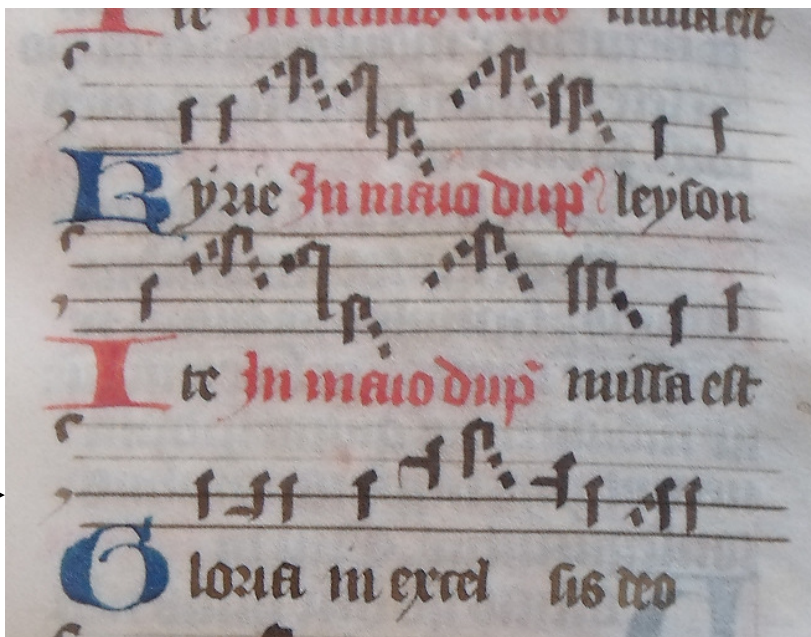 Ite missa est
Kyrie In maio dup leyson
Ite In maio dup missa est
Gloria in excel sis deo